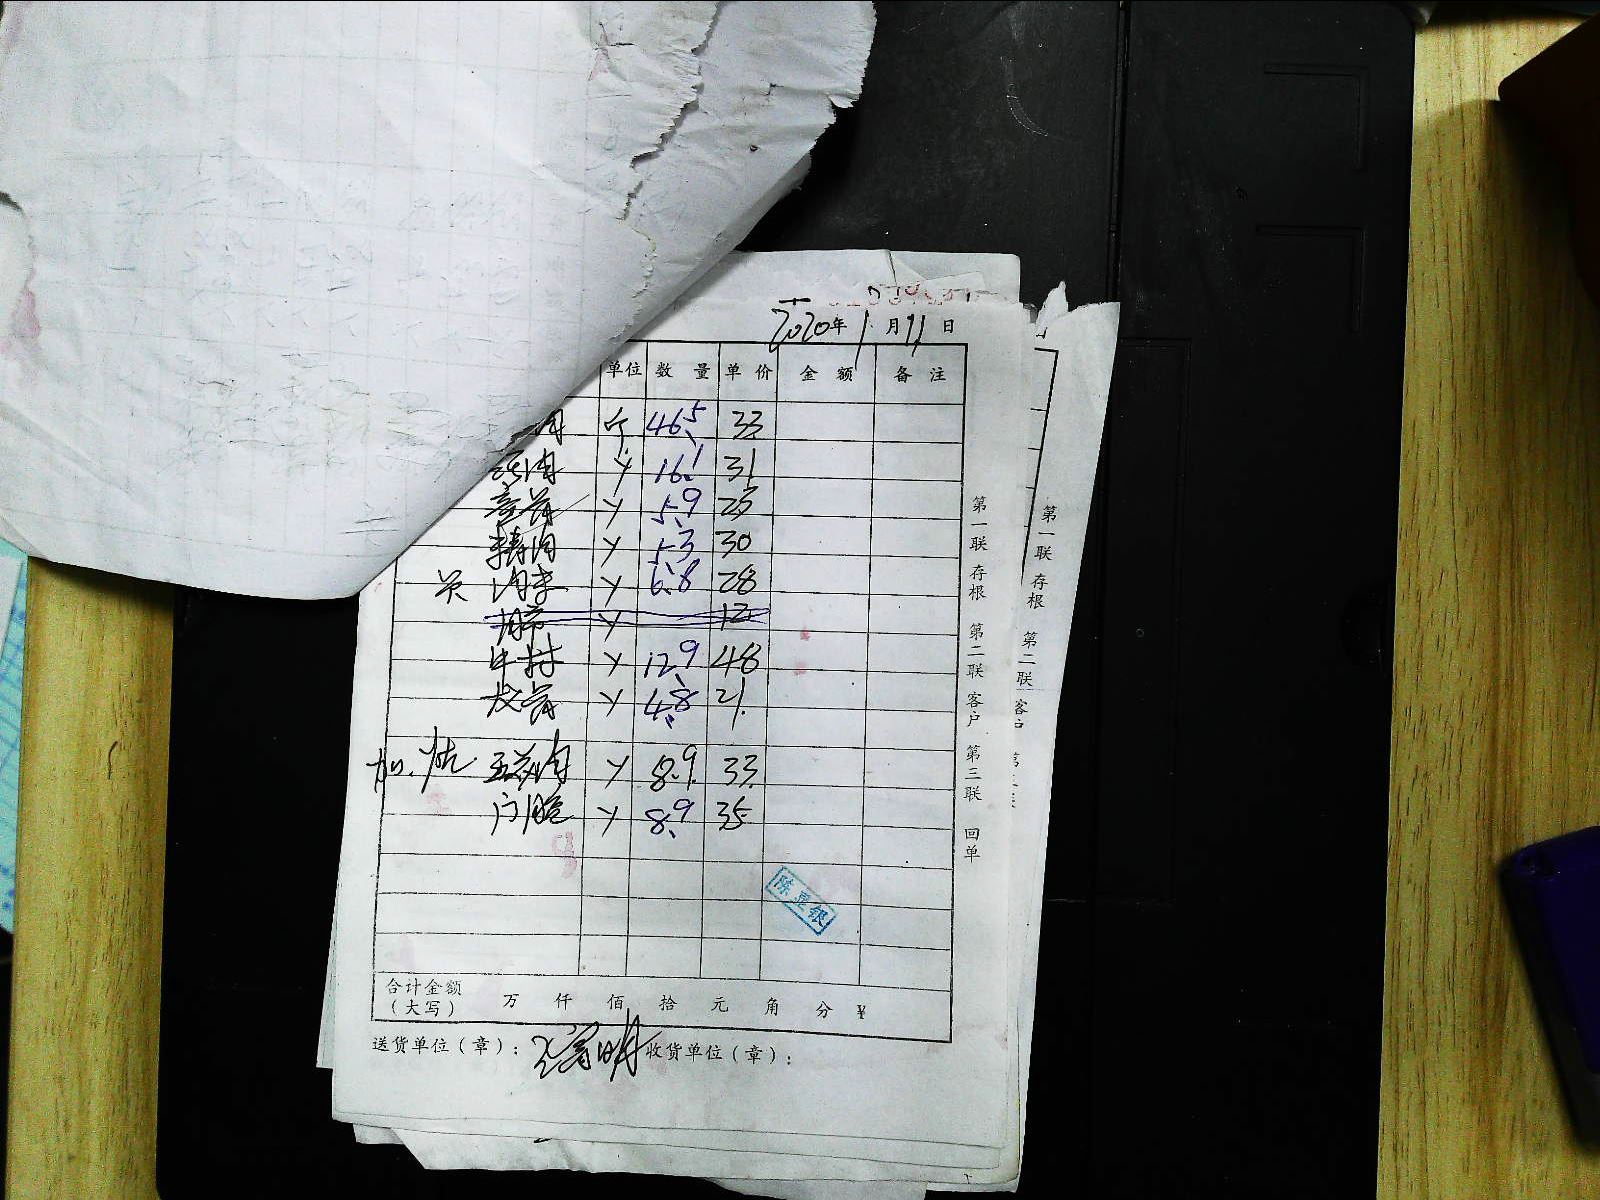 2020年1月11日
单位 数量 单价 金额 备注
肉 斤 46.5 33
肉 Y 16.1 31
Y 5.9 23
精肉 Y 5.3 30
肉末 Y 6.8 28
Y 12
牛 Y 12.9 48
龙骨 Y 4.8 21.
加. 五花肉 Y 8.9 33.
门腔 Y 8.9 35
陈 银
合计金额
(大写) 万 仟 佰 拾 元 角 分 ¥
送货单位(章): 明 收货单位(章):
第一联 存根 第二联 客户 第三联 回单
第一联 存根 第二联 客户